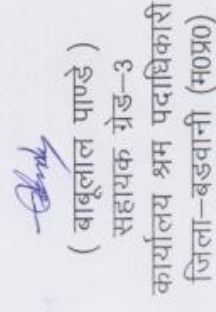 ( बाबूलाल पाण्डे )
सहायक ग्रेड–3
कार्यालय श्रम पदाधिकारी
जिला–बडवानी (म०प्र०)